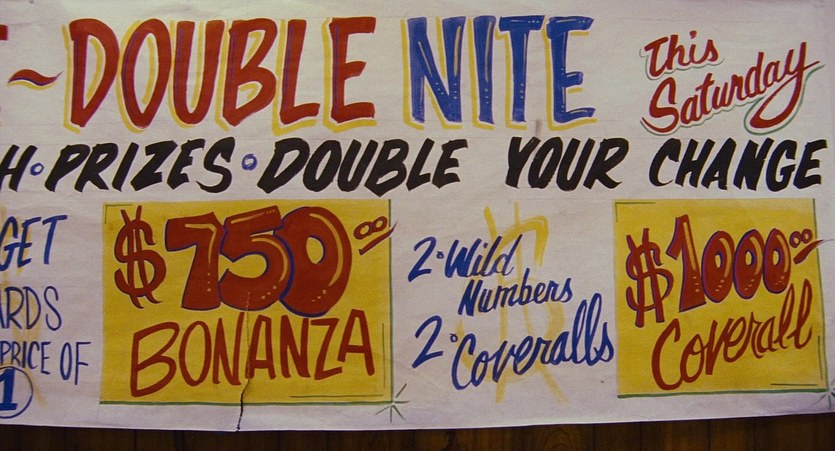 ~ DOUBLE NITE
This
Saturday
H • PRIZES • DOUBLE YOUR CHANGE
GET
ARDS
PRICE OF
1
$750.00
BONANZA
2 • Wild
Numbers
2 • Coveralls
$1000.00
Coverall